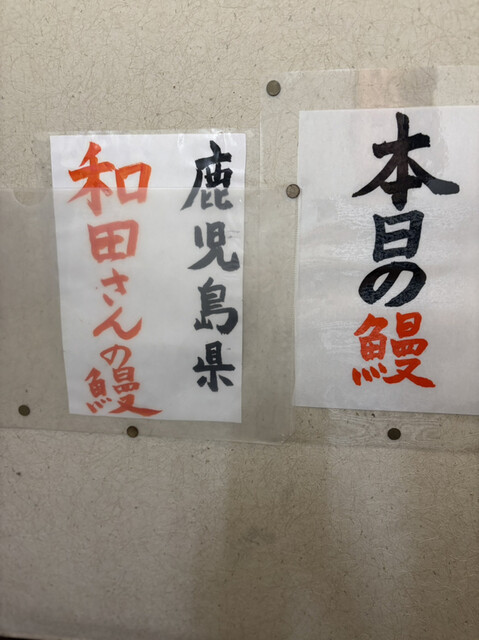 本日の鰻
鹿児島県
和田さんの鰻